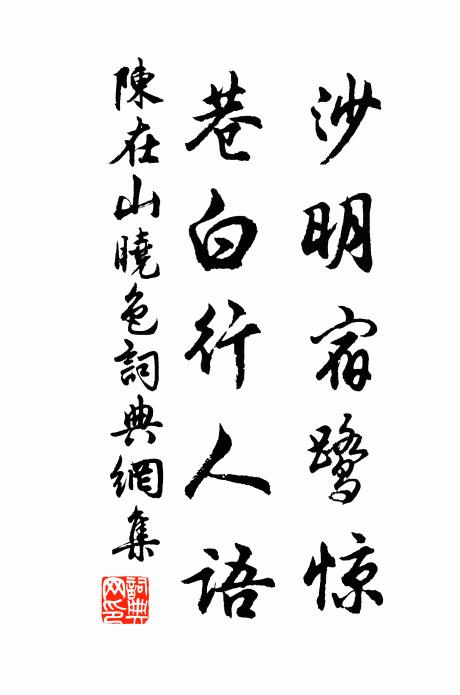 沙明宿鹭惊
巷白行人语
陳在山曉色詞典網集
詞典
网印